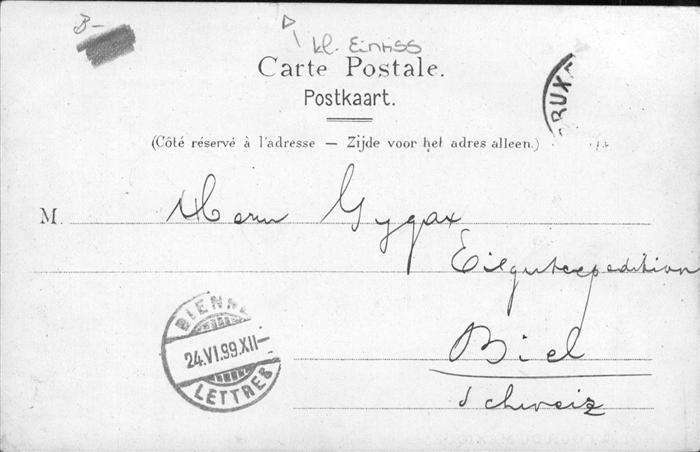 B-
kl. Einriss
Carte Postale.
Postkaart.
(Côté réservé à l'adresse — Zijde voor het adres alleen.)
BRUXE
M. Herrn Gygax
Eilgutexpedition
Biel
Schweiz
BIENNE
24.VI.99.XII—
LETTRES